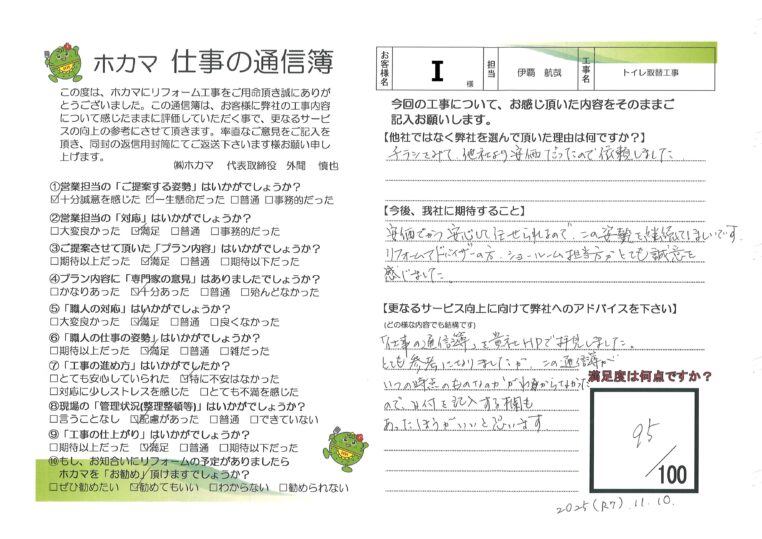 ホカマ 仕事の通信簿
この度は、ホカマにリフォーム工事をご用命頂き誠にありが
とうございました。この通信簿は、お客様に弊社の工事内容
について感じたままに評価していただく事で、更なるサービ
スの向上の参考にさせて頂きます。率直なご意見をご記入を
頂き、同封の返信用封筒にてご返送下さいます様お願い申し
上げます。
㈱ホカマ 代表取締役 外間 慎也
①営業担当の「ご提案する姿勢」はいかがでしょうか？
☑十分誠意を感じた ☑一生懸命だった □普通 □事務的だった
②営業担当の「対応」はいかがでしょうか？
□大変良かった ☑満足 □普通 □事務的だった
③ご提案させて頂いた「プラン内容」はいかがでしょうか？
□期待以上だった ☑満足 □普通 □期待以下だった
④プラン内容に「専門家の意見」はありましたでしょうか？
□かなりあった ☑十分あった □普通 □殆んどなかった
⑤「職人の対応」はいかがでしょうか？
□大変良かった ☑満足 □普通 □良くなかった
⑥「職人の仕事の姿勢」はいかがでしょうか？
□期待以上だった ☑満足 □普通 □雑だった
⑦「工事の進め方」はいかがでしたか？
□とても安心していられた ☑特に不安はなかった
□対応に少しストレスを感じた □とても不満を感じた
⑧現場の「管理状況(整理整頓等)」はいかがでしょうか？
□言うことなし ☑配慮があった □普通 □できていない
⑨「工事の仕上がり」はいかがでしょうか？
□期待以上だった ☑満足 □普通 □期待以下だった
⑩もし、お知合いにリフォームの予定がありましたら
ホカマを「お勧め」頂けますでしょうか？
□ぜひ勧めたい ☑勧めてもいい □わからない □勧められない
お客様名 I 様 担当 伊覇 航哉 工事名 トイレ取替工事
今回の工事について、お感じ頂いた内容をそのままご
記入お願いします。
【他社ではなく弊社を選んで頂いた理由は何ですか？】
チラシをみて、他社より安価だったので依頼しました
【今後、我社に期待すること】
安価でかつ安心して任せられるので、この姿勢を継続してほしいです
リフォームアドバイザーの方、ショールーム担当方がとても誠意を
感じました。
【更なるサービス向上に向けて弊社へのアドバイスを下さい】
(どの様な内容でも結構です)
「仕事の通信簿」を貴社HPで拝見しました。
とても参考になりましたが、この通信簿が
いつの時点のものなのかがわからなかった
ので、日付を記入する欄も
あったほうがいいと思います
満足度は何点ですか？
95
/100
2025(R7).11.10.